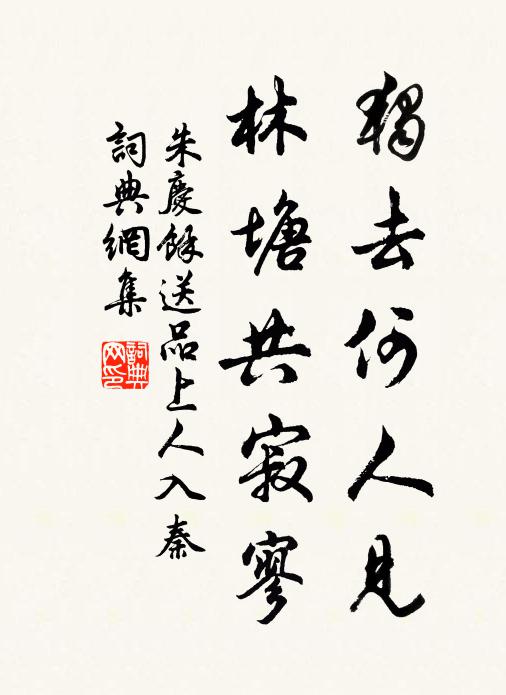 獨去何人見
林塘共寂寥
朱慶餘送品上人入秦
詞典網集
詞典网印